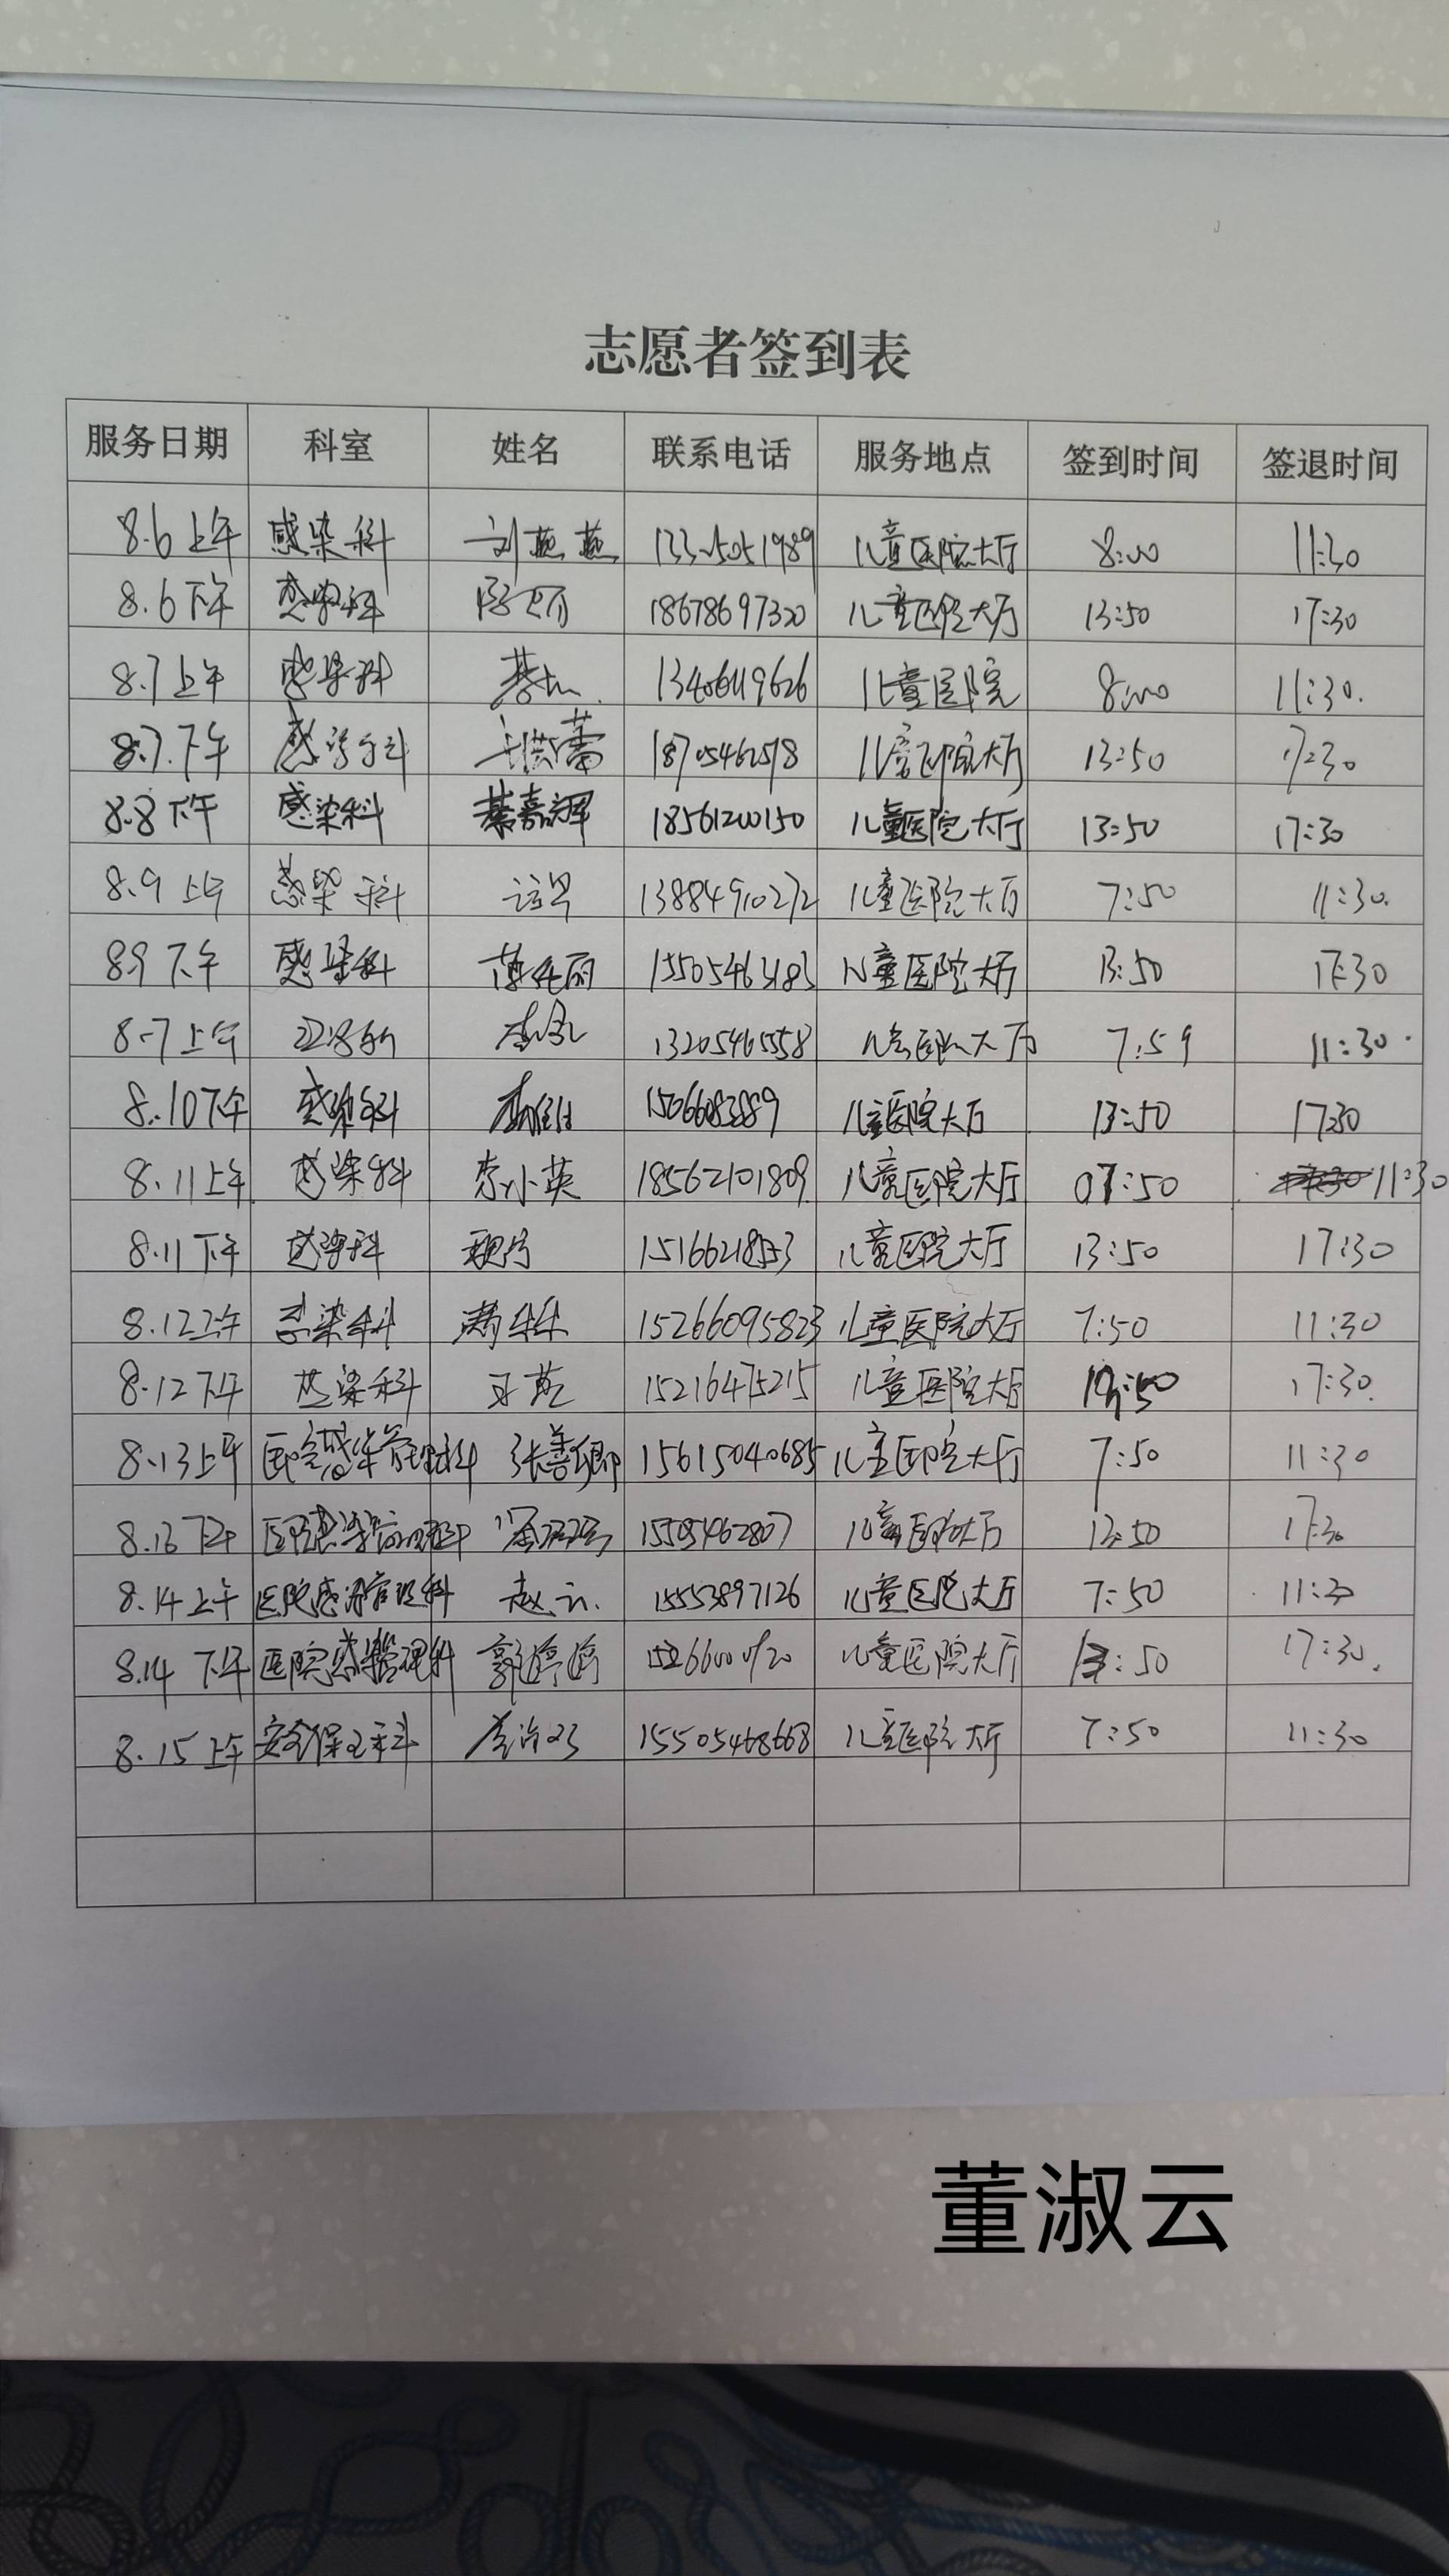 志愿者签到表
服务日期 科室 姓名 联系电话 服务地点 签到时间 签退时间
8.6上午 感染科 刘燕燕 儿童医院大厅 8:00 11:30
8.6下午 感染科 18678697320 儿童医院大厅 13:50 17:30
8.7上午 感染科 儿童医院 8:00 11:30.
8.7.下午 感染科 儿童医院大厅 13:50 17:30
8.8下午 感染科 18561200150 儿童医院大厅 13:50 17:30
8.9上午 感染科 13884910272 儿童医院大厅 7:50 11:30.
8.9下午 感染科 儿童医院大厅 13:50 17:30
8.7上午 13205465558 儿童医院大厅 7:59 11:30
8.10下午 感染科 儿童医院大厅 13:50 17:30
8.11上午 感染科 李小英 18562101809 儿童医院大厅 07:50 11:30
8.11下午 感染科 儿童医院大厅 13:50 17:30
8.12上午 感染科 15266095823 儿童医院大厅 7:50 11:30
8.12下午 感染科 王燕 15216475215 儿童医院大厅 17:30.
8.13上午 医院感染管理科 张善卿 15615040685 儿童医院大厅 7:50 11:30
8.13下午 医院感染管理科 15505462807 儿童医院大厅 13:50 17:30
8.14上午 医院感染管理科 赵云 15553897126 儿童医院大厅 7:50
8.14下午 医院感染管理科 郭婷婷 儿童医院大厅 13:50 17:30.
8.15上午 安全保卫科 15505468668 儿童医院大厅 7:50 11:30
董淑云